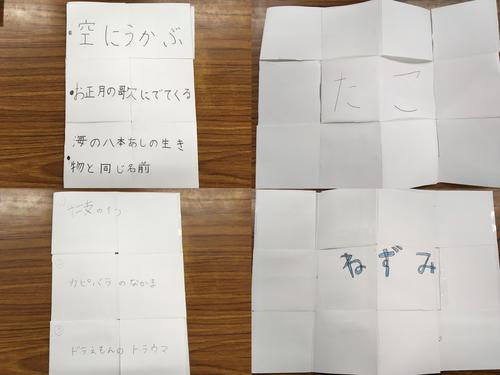 空にうかぶ
お正月の歌にでてくる
海の八本あしの生き
物と同じ名前
たこ
十二支の1つ
カピバラのなかま
ドラえもんのトラウマ
ねずみ